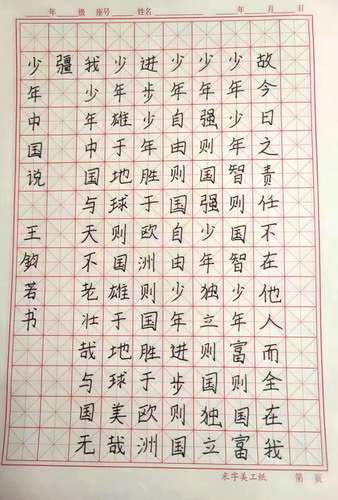 年 级 座号 姓名 年 月 日
故今日之责任不在他人而全在我
少年少年智则国智少年富则国富
少年强则国强少年独立则国独立
少年自由则国自由少年进步则国
进步少年胜于欧洲则国胜于欧洲
少年雄于地球则国雄于地球美哉
我少年中国与天不老壮哉与国无
疆
少年中国说 王钧若书
米字美工纸 第 页